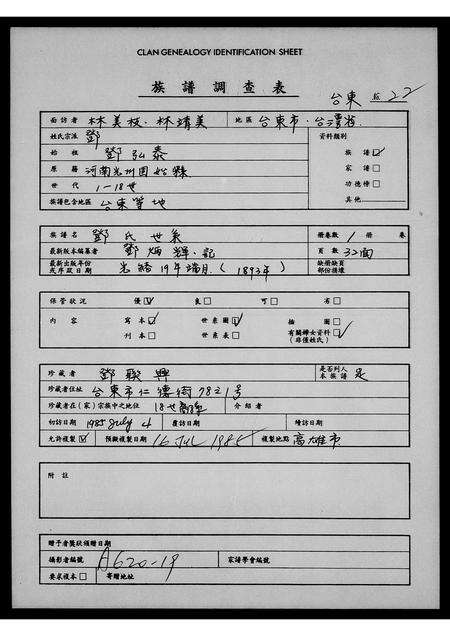 CLAN GENEALOGY IDENTIFICATION SHEET
族譜調查表
台東 22
面訪者 林美枝、林靖美 地區 台東市、台灣省
姓氏宗派 鄧 資料類別
始祖 鄧弘泰 族譜☑
原籍 河南光州固始縣 家譜□
世代 1-18世 功德榜□
族譜包含地區 台東等地 其他
族譜名 鄧氏世系 冊卷數 1 冊 卷
最新版本編纂者 鄧炳輝記 頁數 32面
最新出版年份或序跋日期 光緒19年端月(1893年) 缺冊缺頁部份損壞
保管狀況 優☑ 良□ 可□ 劣□
內容 寫本☑ 世系圖☑ 插圖□
刊本□ 世系表□ 有關婦女資料(非僅姓氏)☑
珍藏者 鄧聯興 是否列入本族譜 是
珍藏者住址 台東市仁德街78之1號
珍藏者在(家)宗族中之地位 18世 介紹者
初訪日期 1985 July 4 覆訪日期 續訪日期
允許複製☑ 預擬複製日期 16 Jul 1985 複製地點 高雄市
附註
贈予者獎狀頒贈日期
攝影者編號 A620-19 家譜學會編號
要求複本□ 寄贈地址